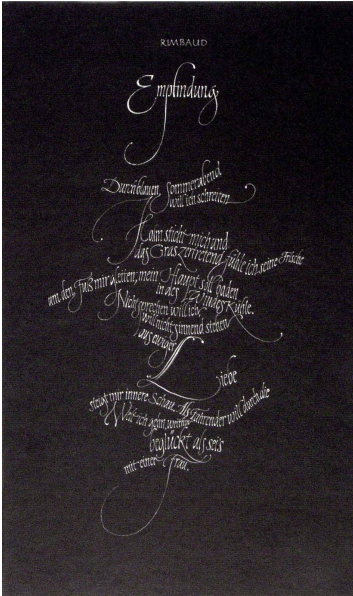 RIMBAUD
Empfindung
Durch blauen Sommerabend
will ich schreiten
Halm sticht mich und
das Gras zertretend fühle ich seine Frische
um den Fuß mir gleiten, mein Haupt soll baden
in des Windes Kühle.
Nicht sprechen will ich,
will nicht sinnend stehen
aus ewiger
Liebe
steigt mir innere Schau. Als Fahrender will durch die
Welt ich gehn, weit
beglückt als seis
mit einer Frau.